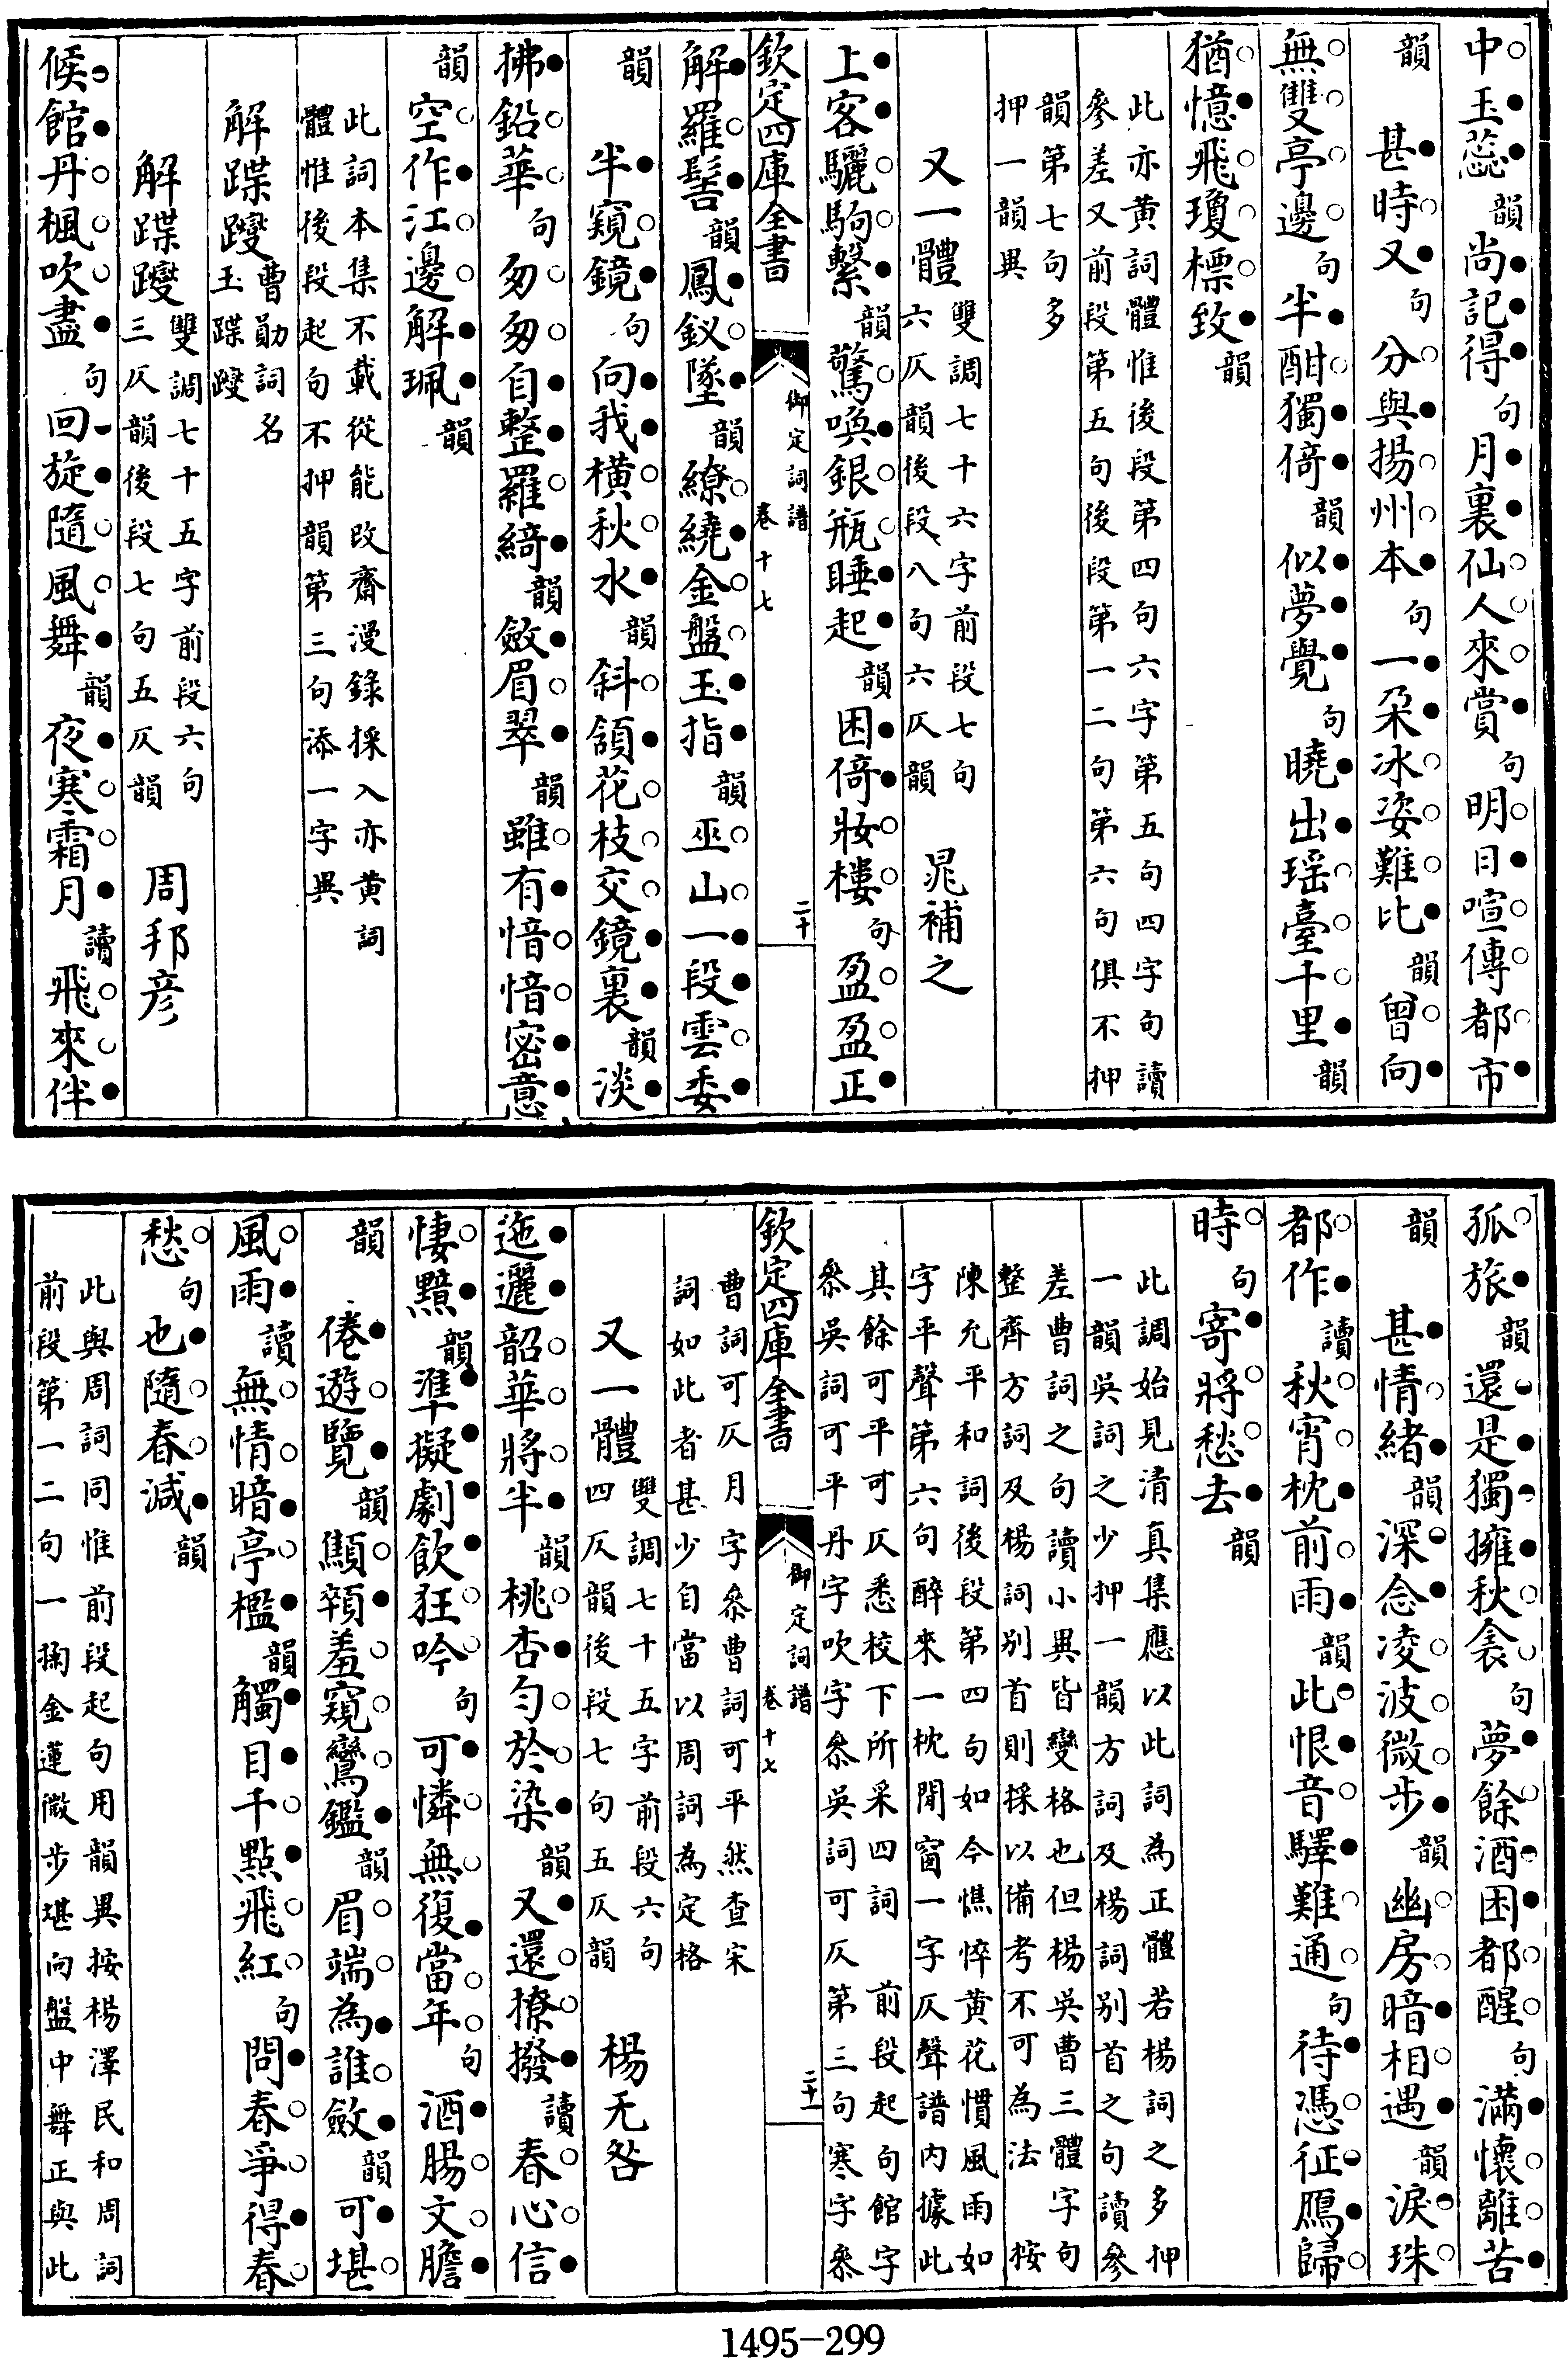 中玉蕊韻尚記得句月裏仙人來賞句明日喧傳都市
韻　甚時又句分與揚州本句一朶冰姿難比韻曾向
無雙亭邊句半酣獨倚韻似夢覺句曉出瑤臺千里韻
猶憶飛瓊標致韻
此亦黃詞體惟後段第四句六字第五句四字句讀
參差又前段第五句後段第一二句第六句俱不押
韻第七句多
押一韻異
又一體雙調七十六字前段七句
六仄韻後段八句六仄韻　晁補之
上客驪駒繫韻驚喚銀瓶睡起韻困倚妝樓句盈盈正
欽定四庫全書　御定詞譜卷十七　二十
解羅髻韻鳳釵墜韻繚繞金盤玉指韻巫山一段雲委
韻　半窺鏡句向我橫秋水韻斜領花枝交鏡裏韻淡
拂鉛華句匆匆自整羅綺韻斂眉翠韻雖有愔愔密意
韻空作江邊解珮韻
此詞本集不載從能改齋漫錄採入亦黃詞
體惟後段起句不押韻第三句添一字異
解蹀躞曹勛詞名
玉蹀躞
解蹀躞雙調七十五字前段六句
三仄韻後段七句五仄韻　周邦彥
候館丹楓吹盡句回旋隨風舞韻夜寒霜月讀飛來伴
孤旅韻還是獨擁秋衾句夢餘酒困都醒句滿懷離苦
韻　甚情緒韻深念凌波微步韻幽房暗相遇韻淚珠
都作讀秋宵枕前雨韻此恨音驛難通句待憑征鴈歸
時句寄將愁去韻
此調始見清真集應以此詞為正體若楊詞之多押
一韻吳詞之少押一韻方詞及楊詞別首之句讀參
差曹詞之句讀小異皆變格也但楊吳曹三體字句
整齊方詞及楊詞別首則採以備考不可為法　按
陳允平和詞後段第四句如今憔悴黃花慣風雨如
字平聲第六句醉來一枕閒窗一字仄聲譜內據此
其餘可平可仄悉校下所采四詞　前段起句館字
叅吳詞可平丹字吹字叅吳詞可仄第三句寒字叅
欽定四庫全書　御定詞譜卷十七　二十一
曹詞可仄月字叅曹詞可平然查宋
詞如此者甚少自當以周詞為定格
又一體雙調七十五字前段六句
四仄韻後段七句五仄韻　楊无咎
迤邐韶華將半韻桃杏勻於染韻又還撩撥讀春心信
悽黯韻準擬劇飲狂吟句可憐無復當年句酒腸文膽
韻　倦遊覽韻顒頷羞窺鸞鑑韻眉端為誰斂韻可堪
風雨讀無情暗亭檻韻觸目千點飛紅句問春爭得春
愁句也隨春減韻
此與周詞同惟前段起句用韻異按楊澤民和周詞
前段第一二句一掬金蓮微步堪向盤中舞正與此
1495-299